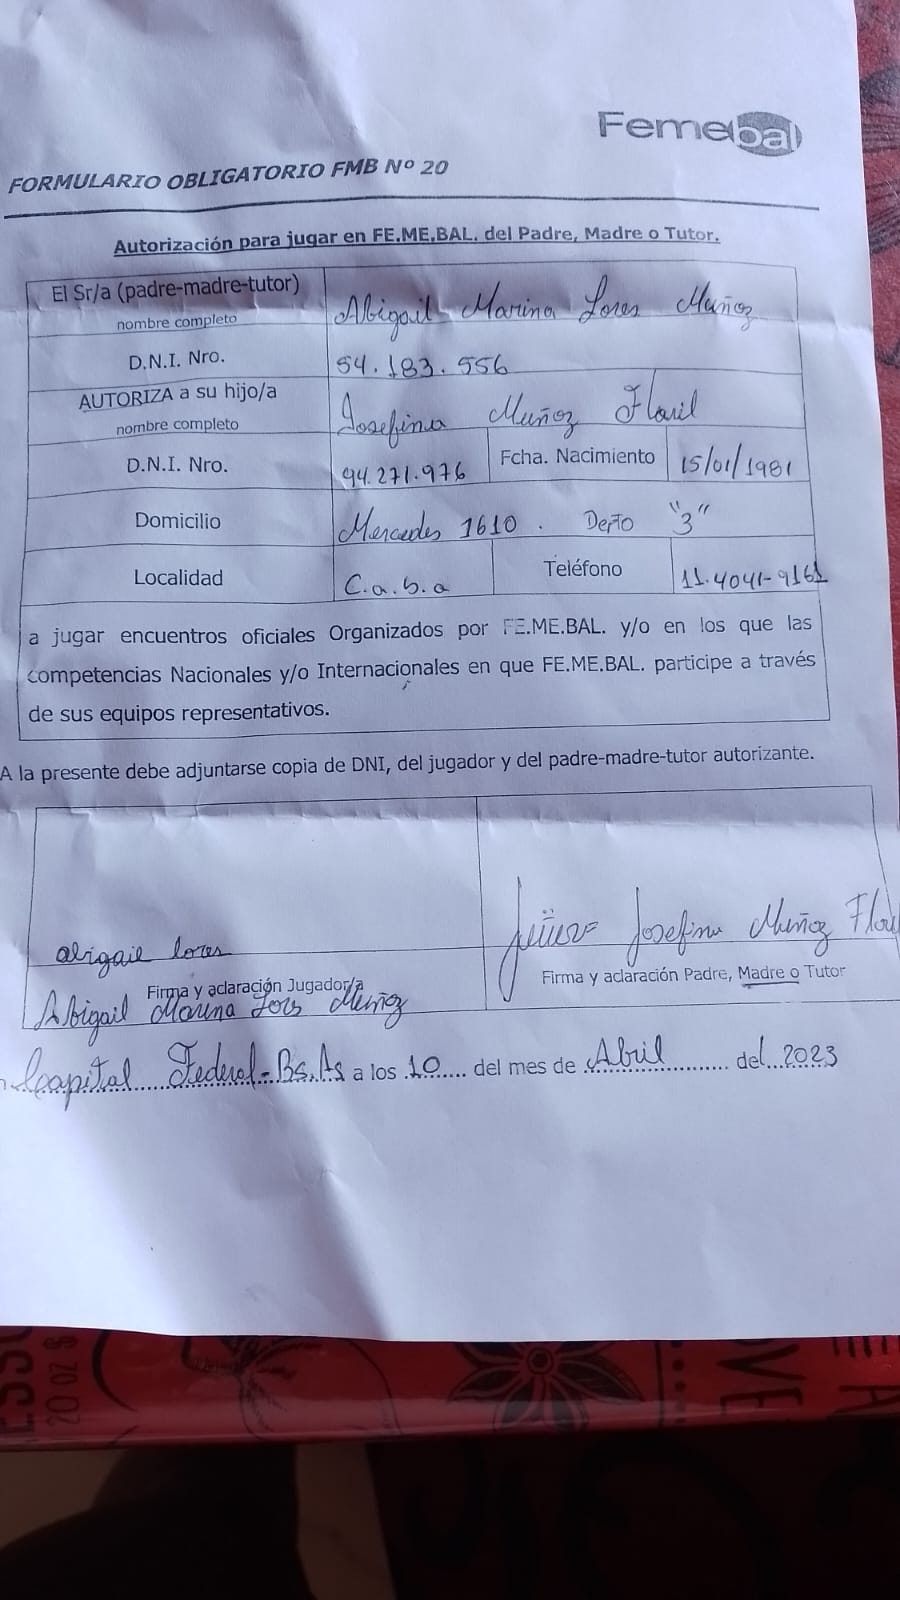 Femebal
FORMULARIO OBLIGATORIO FMB Nº 20
Autorización para jugar en FE.ME.BAL. del Padre, Madre o Tutor.
El Sr/a (padre-madre-tutor) nombre completo Abigail Marina Lores Muñoz
D.N.I. Nro. 54.183.556
AUTORIZA a su hijo/a nombre completo Josefina Muñoz Floril
D.N.I. Nro. 94.271.976 Fcha. Nacimiento 15/01/1981
Domicilio Mercedes 1610. Depto "3"
Localidad C.a.b.a Teléfono 11.4041-9161
a jugar encuentros oficiales Organizados por FE.ME.BAL. y/o en los que las
competencias Nacionales y/o Internacionales en que FE.ME.BAL. participe a través
de sus equipos representativos.
A la presente debe adjuntarse copia de DNI, del jugador y del padre-madre-tutor autorizante.
abigail lores
Firma y aclaración Jugador/a
Abigail Marina Lores Muñoz
Josefina Muñoz
Firma y aclaración Padre, Madre o Tutor
Capital Federal-Bs.As a los 10 del mes de Abril del 2023
20 OZ